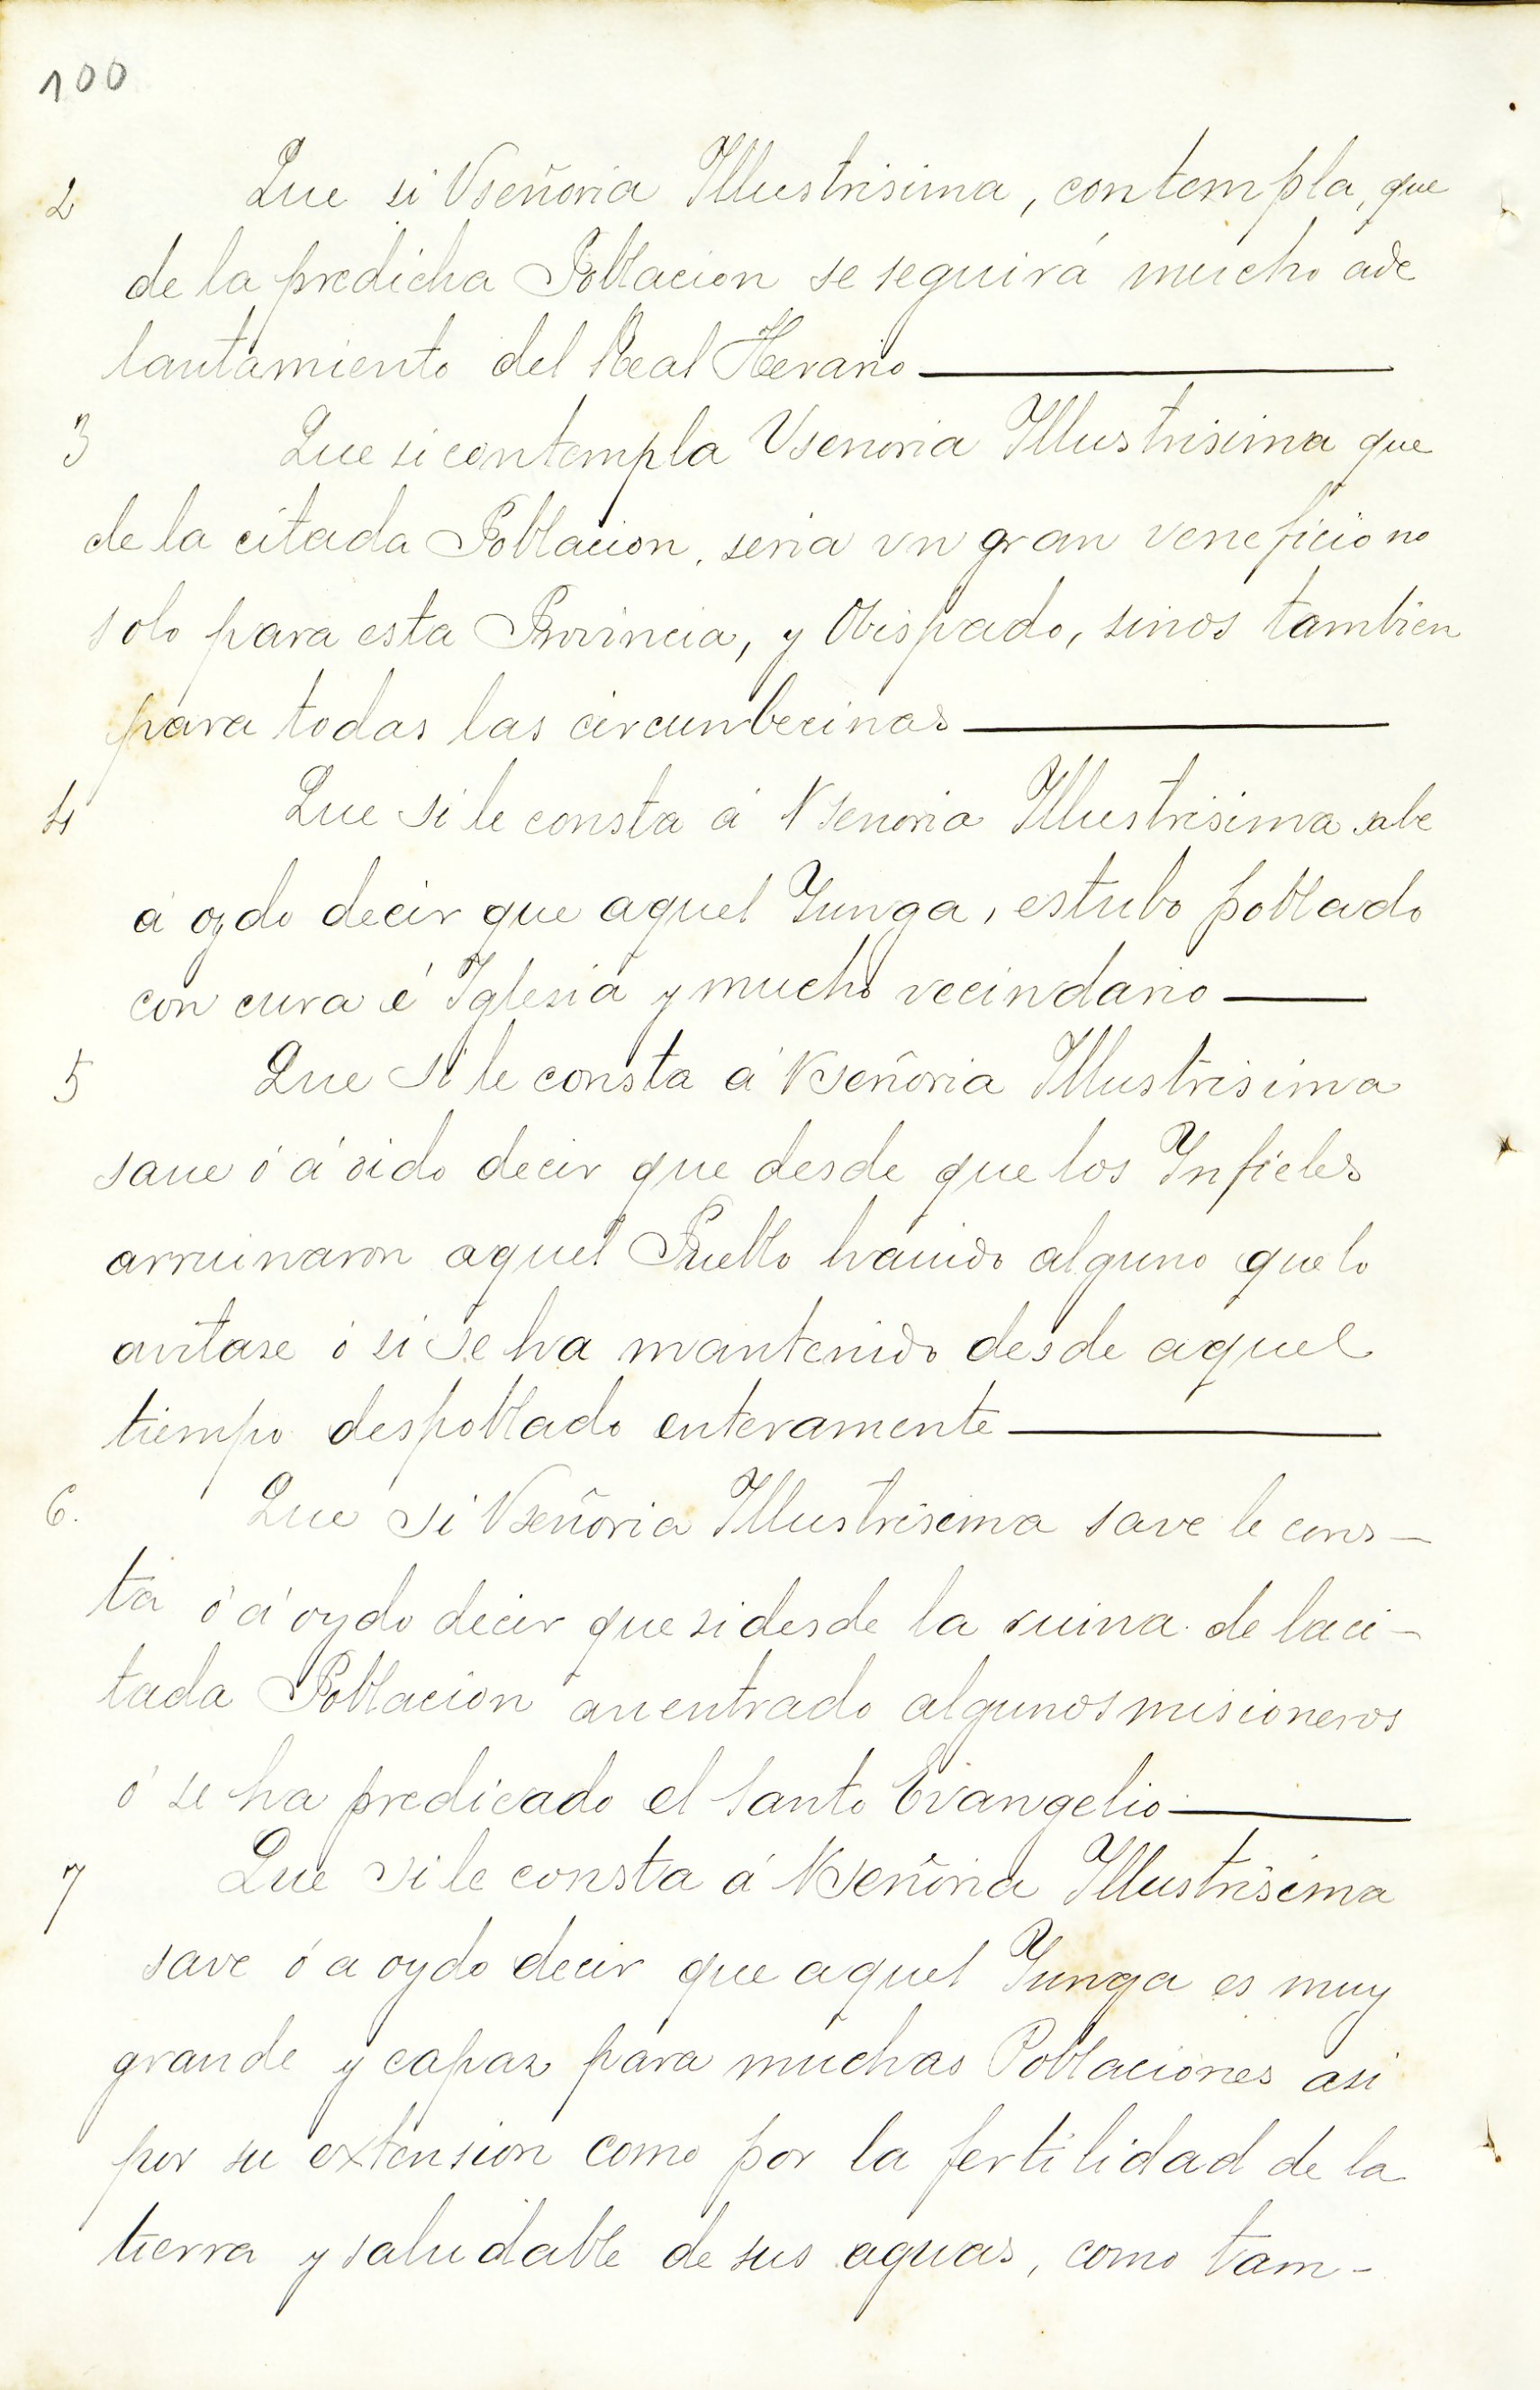 100
2 Que si Vseñoria Illustrisima, contempla, que
de la predicha Poblacion se seguirá mucho ade
lantamiento del Real Herario
3 Que si contempla Vsenoria Illustrisima que
de la citada Poblacion, seria vn gran veneficio no
solo para esta Provincia, y Obispado, sinos tambien
para todas las circumbecinas
4 Que si le consta á Vsenoria Illustrisima sabe
á oydo decir que aquel Yunga, estubo poblado
con cura é Iglesia y mucho vecindario
5 Que si le consta á Vseñoria Illustrisima
saue ó á oido decir que desde que los Infieles
arruinaron aquel Pueblo hauido alguno que lo
avitase ó si se ha mantenido desde aquel
tiempo despoblado enteramente
6. Que si Vseñoria Illustrisima save le cons-
ta ó á oydo decir que si desde la ruina de la ci-
tada Poblacion an entrado algunos misioneros
ó se ha predicado el Santo Evangelio
7 Que si le consta á Vseñoria Illustrisima
save ó a oydo decir que aquel Yunga es muy
grande y capaz para muchas Poblaciones asi
por su extension como por la fertilidad de la
tierra y saludable de sus aguas, como tam-